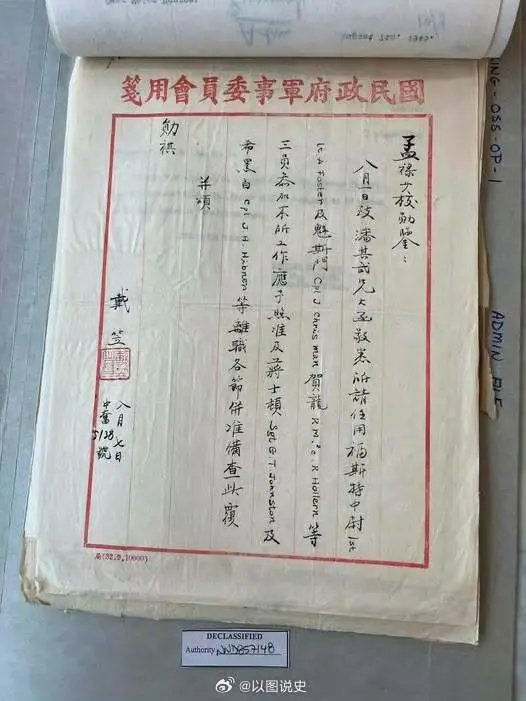 August 1st, 1943.
國民政府軍事委員會用箋
孟祿少校勛鑒：
八月一日致潘其武兄大函敬悉所請任用福斯特中尉 1st
Lt. A Foster 及魁斯門 Cpl J Chrisman 賀龍 R.M. R Hollern 等
三員參加不所工作應予照准及蔣士頓 Sgt B. T. Johnston 及
希黑白 Cpl J. H. Hibner 等離職各節併准備查此覆
并頌
勛祺
戴笠
八月七日
中奮
5138
號
局(32.9,10000)
OSS-OP-1
ADMIN FILE
DECLASSIFIED
Authority NND857148
@以图说史